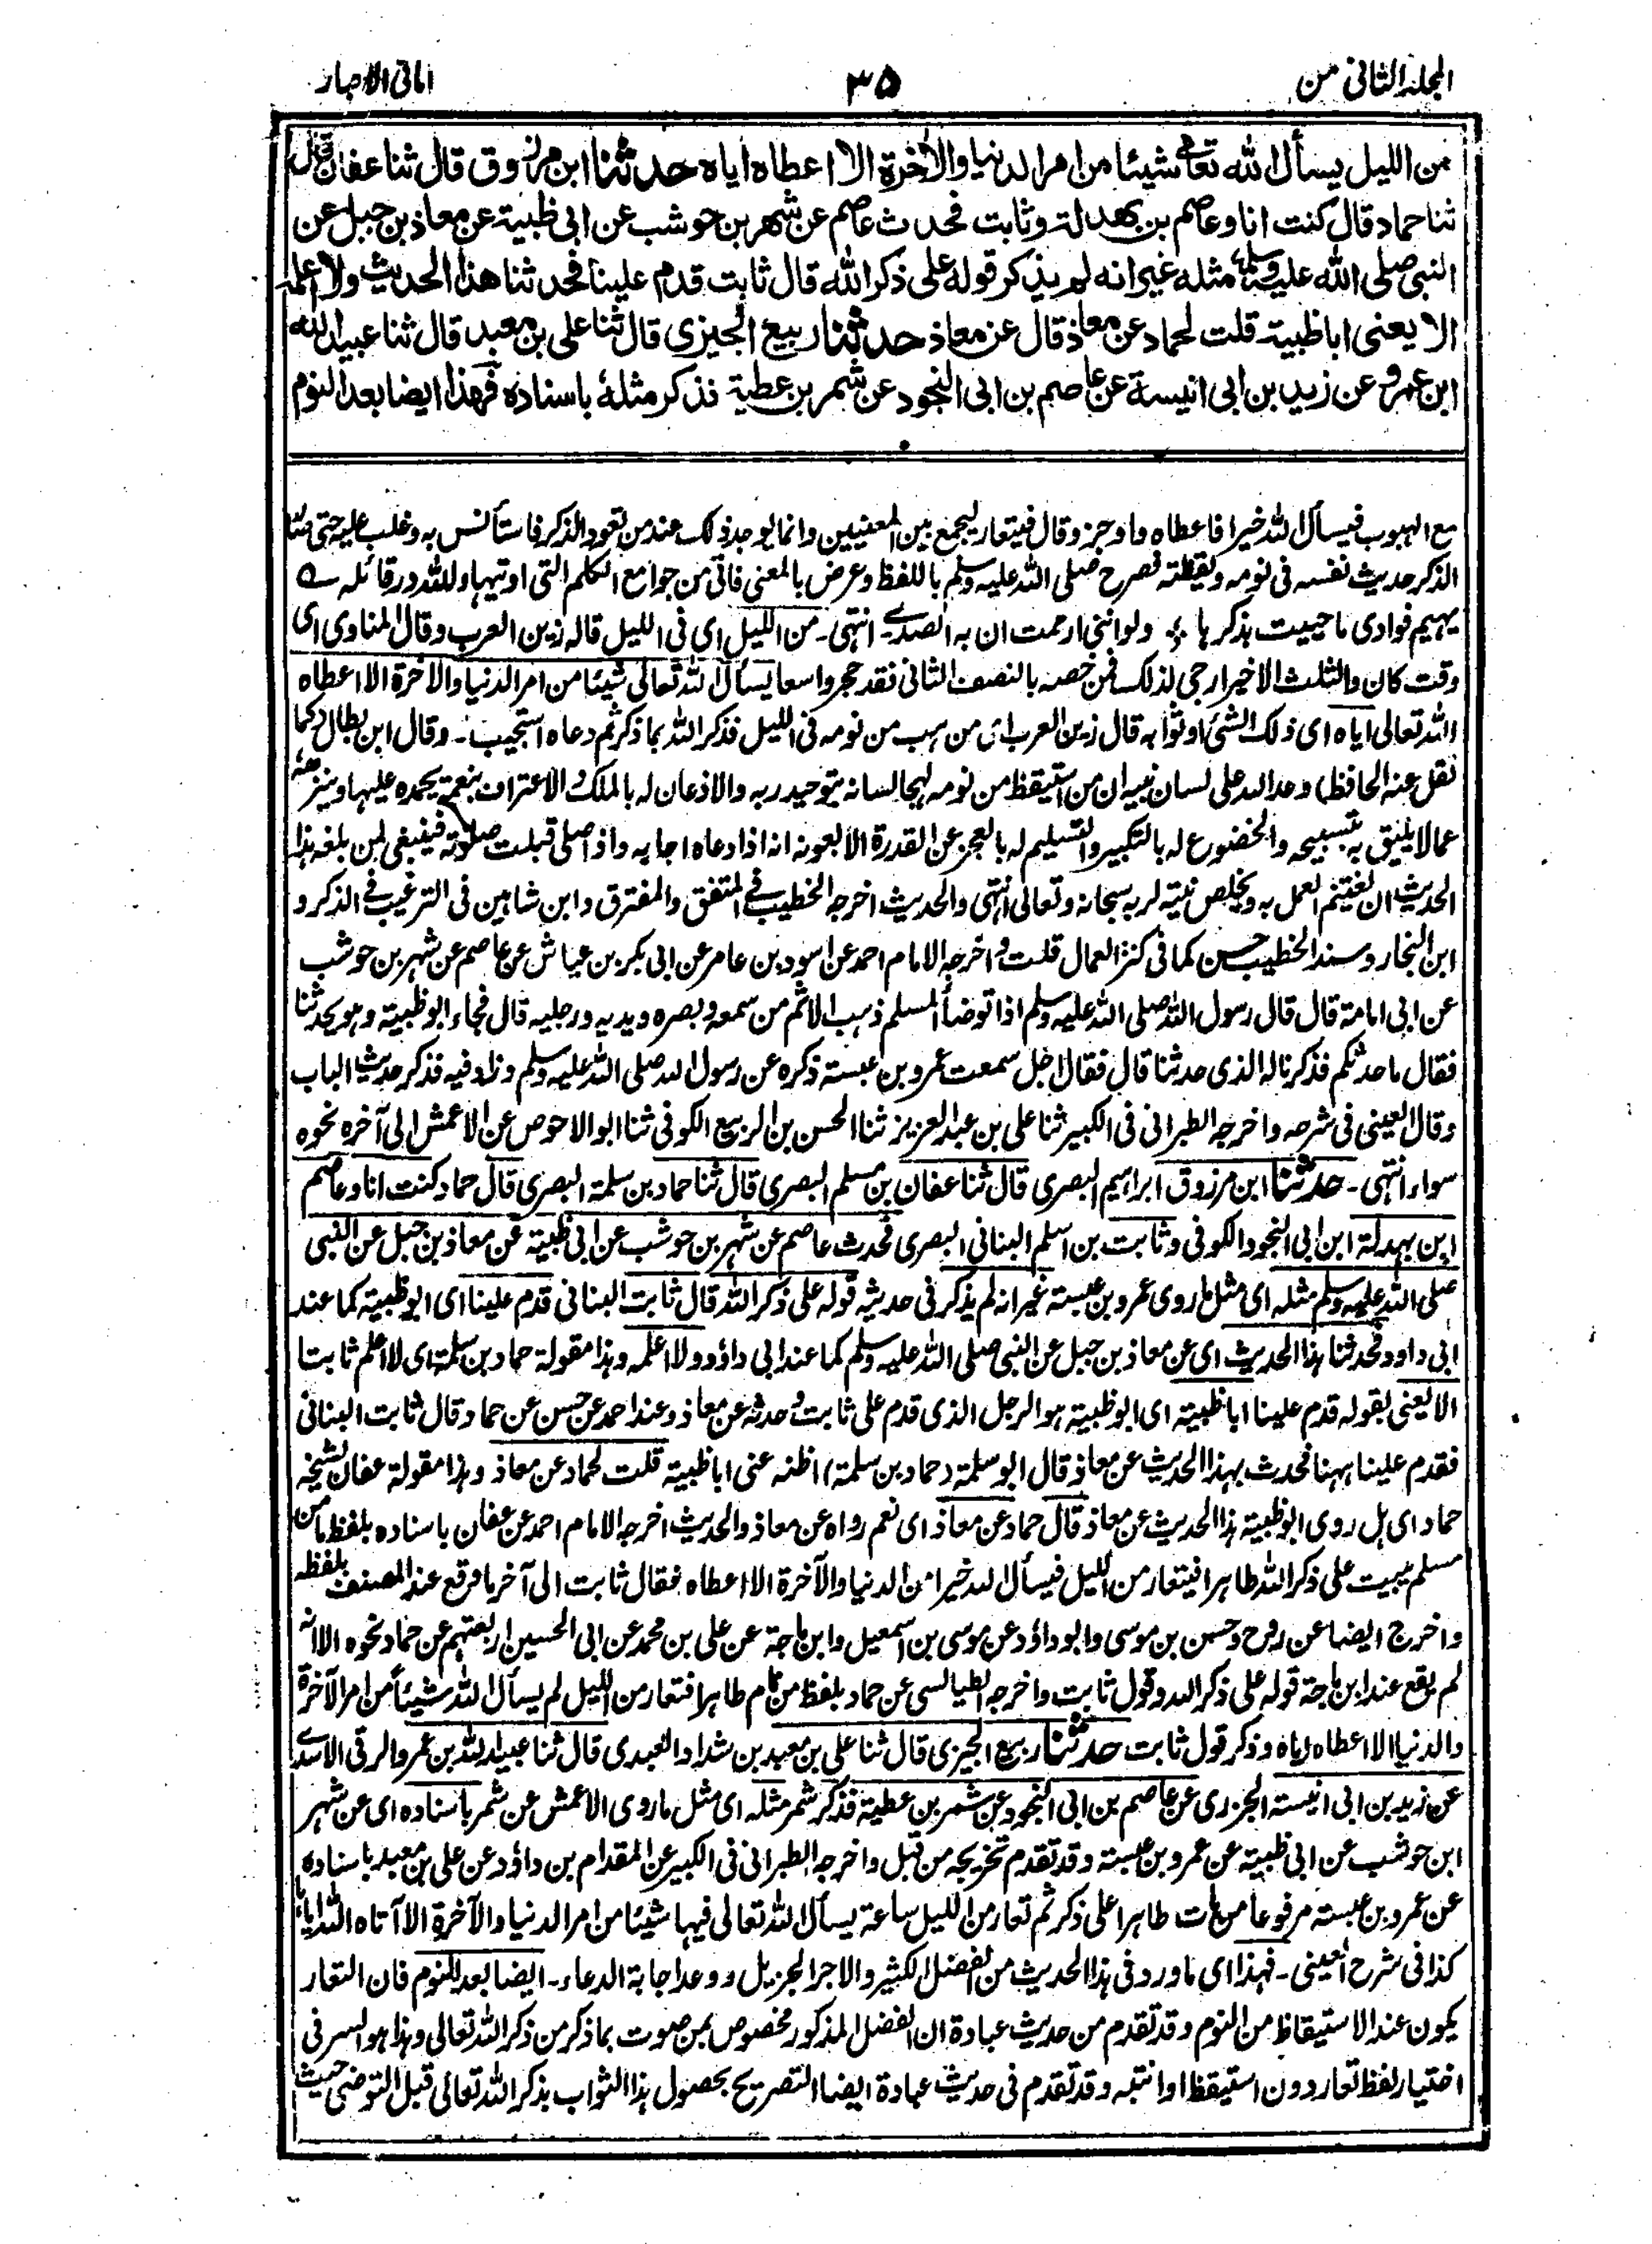 المجلد الثانى من
٣٥
امانى الاحبار
من الليل يسأل الله تعالى شيئا من امر الدنيا والأخرة الا اعطاه اياه حدثنا ابن مرزوق قال ثنا عفان قال
ثنا حماد قال كنت انا وعاصم بن بهدلة وثابت فحدث عاصم عن شهر بن حوشب عن ابى ظبية عن معاذ بن جبل عن
النبى صلى الله عليه وسلم مثله غير انه لم يذكر قوله على ذكر الله قال ثابت قدم علينا فحدثنا هذا الحديث ولا اعلمه
الا يعنى اباظبية قلت لحماد عن معاذ قال عن معاذ حدثنا ربيع الجيزى قال ثنا على بن معبد قال ثنا عبيد الله
ابن عمرو عن زيد بن ابى انيسة عن عاصم بن ابى النجود عن شمر بن عطية فذكر مثله باسناده فهذا ايضا بعد النوم
مع الهبوب فيسأل الله خيرا فاعطاه فاوجز وقال فيتعار ليجمع بين المعنيين وانما يوجد ذلك عند من تعود الذكر فاستأنس به وغلب عليه حتى صار
الذكر حديث نفسه فى نومه ويقظته فصرح صلى الله عليه وسلم باللفظ وعرض بالمعنى فاتى من جوامع الكلم التى اوتيها ولله در قائله
يهيم فوادى ما حييت بذكرها ؛ ولو اننى ارممت ان به الصدى۔ انتهى۔ من الليل اى فى الليل قاله زين العرب وقال المناوى اى
وقت كان والثلث الاخير ارجى لذلك فمن خصه بالنصف الثانى فقد حجر واسعا يسأل الله تعالى شيئا من امر الدنيا والاخرة الا اعطاه
الله تعالى اياه اى ذلك الشئ او ثوابه قال زين العرب اى من هب من نومه فى الليل فذكر الله بما ذكر ثم دعاه استجيب۔ وقال ابن بطال (كما
نقل عنه الحافظ) وعد الله على لسان نبيه ان من استيقظ من نومه لهجا لسانه بتوحيد ربه والاذعان له بالملك والاعتراف بنعمه يحمده عليها وينزهه
عما لا يليق به بتسبيحه والخضوع له بالتكبير والتسليم له بالعجز عن القدرة الا بعونه انه اذا دعاه اجابه واذا صلى قبلت صلوته فينبغى لمن بلغه هذا
الحديث ان يغتنم العمل به ويخلص نيته لربه سبحانه وتعالى انتهى والحديث اخرجه الخطيب فى المتفق والمفترق وابن شاهين فى الترغيب فى الذكر و
ابن النجار وسند الخطيب حسن كما فى كنز العمال قلت واخرجه الامام احمد عن اسود بن عامر عن ابى بكر بن عياش عن عاصم عن شهر بن حوشب
عن ابى امامة قال قال رسول الله صلى الله عليه وسلم اذا توضأ المسلم ذهب الاثم من سمعه وبصره ويديه ورجليه قال فجاء ابو ظبية وهو يحدثنا
فقال ما حدثكم فذكرنا له الذى حدثنا قال فقال اجل سمعت عمرو بن عبسة ذكره عن رسول الله صلى الله عليه وسلم وزاد فيه فذكر حديث الباب
وقال العينى فى شرحه واخرجه الطبرانى فى الكبير ثنا على بن عبد العزيز ثنا الحسن بن الربيع الكوفى ثنا ابو الاحوص عن الاعمش الى آخره نحوه
سواء انتهى۔ حدثنا ابن مرزوق ابراهيم البصرى قال ثنا عفان بن مسلم البصرى قال ثنا حماد بن سلمة البصرى قال حماد كنت انا وعاصم
ابن بهدلة ابن ابى النجود الكوفى وثابت بن اسلم البنانى البصرى فحدث عاصم عن شهر بن حوشب عن ابى ظبية عن معاذ بن جبل عن النبى
صلى الله عليه وسلم مثله اى مثل ما روى عمرو بن عبسة غير انه لم يذكر فى حديثه قوله على ذكر الله قال ثابت البنانى قدم علينا اى ابو ظبية كما عند
ابى داود فحدثنا هذا الحديث اى عن معاذ بن جبل عن النبى صلى الله عليه وسلم كما عند ابى داؤد ولا اعلمه وهذا مقولة حماد بن سلمة اى لا اعلم ثابتا
الا يعنى بقوله قدم علينا اباظبية اى ابو ظبية هو الرجل الذى قدم على ثابت وحدثه عن معاذ وعند احمد عن حسن عن حماد قال ثابت البنانى
فقدم علينا ههنا فحدث بهذا الحديث عن معاذ قال ابو سلمة (حماد بن سلمة) اظنه عنى اباظبية قلت لحماد عن معاذ وهذا مقولة عفان لشيخه
حماد اى هل روى ابو ظبية هذا الحديث عن معاذ قال حماد عن معاذ اى نعم رواه عن معاذ والحديث اخرجه الامام احمد عن عفان باسناده بلفظ ما من
مسلم يبيت على ذكر الله طاهرا فيتعار من الليل فيسأل الله خيرا من الدنيا والآخرة الا اعطاه فقال ثابت الى آخر ما وقع عند المصنف بلفظه
واخرج ايضا عن روح وحسن بن موسى وابو داؤد عن موسى بن اسمعيل وابن ماجة عن على بن محمد عن ابى الحسين اربعتهم عن حماد نحوه الا انه
لم يقع عند ابن ماجة قوله على ذكر الله وقول ثابت واخرجه الطيالسى عن حماد بلفظ من نام طاهرا فتعار من الليل لم يسأل الله شيئا من امر الآخرة
والدنيا الا اعطاه اياه وذكر قول ثابت حدثنا ربيع الجيزى قال ثنا على بن معبد بن شداد العبدى قال ثنا عبيد الله بن عمرو الرقى الاسدى
عن زيد بن ابى انيسة الجزرى عن عاصم بن ابى النجود عن شمر بن عطية فذكر شمر مثله اى مثل ما روى الاعمش عن شمر باسناده اى عن شهر
ابن حوشب عن ابى ظبية عن عمرو بن عبسة وقد تقدم تخريجه من قبل واخرجه الطبرانى فى الكبير عن المقدام بن داؤد عن على بن معبد باسناده
عن عمرو بن عبسة مرفوعا من بات طاهرا على ذكر ثم تعار من الليل ساعة يسأل الله تعالى فيها شيئا من امر الدنيا والآخرة الا آتاه الله اياه
كذا فى شرح العينى۔ فهذا اى ما ورد فى هذا الحديث من الفضل الكثير والاجر الجزيل ووعد اجابة الدعاء۔ ايضا بعد النوم فان التعار
يكون عند الاستيقاظ من النوم وقد تقدم من حديث عبادة ان الفضل المذكور مخصوص بمن صوت بما ذكر من ذكر الله تعالى وهذا هو السر فى
اختيار لفظ تعار دون استيقظ او انتبه وقد تقدم فى حديث عبادة ايضا التصريح بحصول هذا الثواب بذكر الله تعالى قبل التوضى حيث